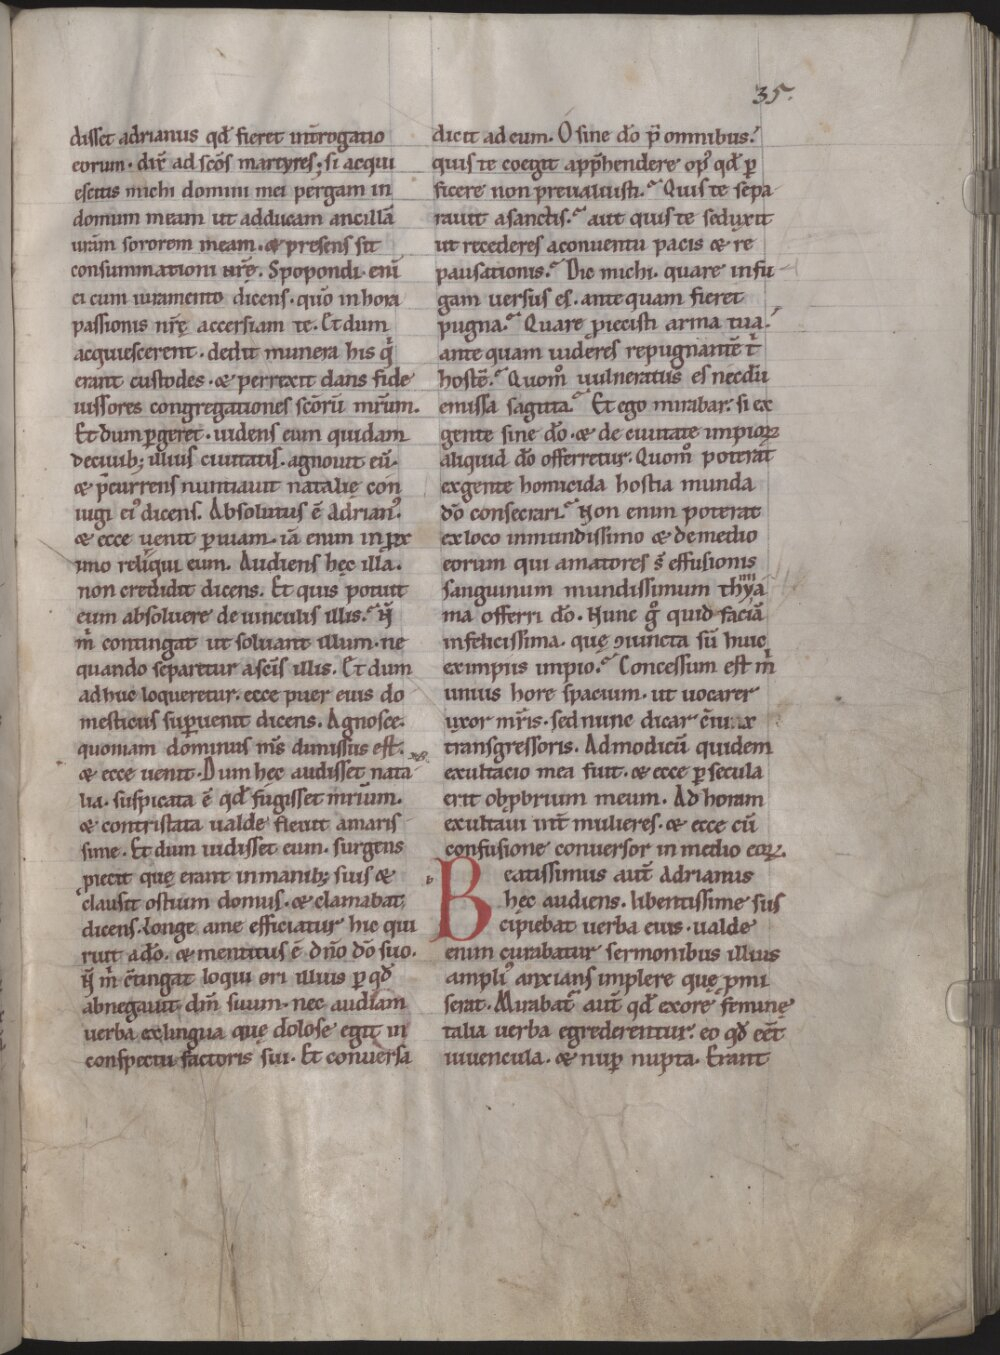 35.
disset adrianus qđ fieret int̄rogatio
eorum. dix̄ ad scōs martyres; si acqui
escitis michi domini mei pergam in
domum meam ut adducam ancillā
urām sororem meam. & presens sit
consummationi ur̄ę. Spopondi. enī
ei cum iuramento dicens. quō in hora
passionis nr̄ę accersiam te. Et dum
acquiescerent. dedit munera his q̇
erant custodes. & perrexit dans fide
iussores congregationes scōrū mr̄um.
Et dum ꝑgeret. uidens eum quidam
deciuib; illius ciuitatis. agnouit eū.
& p̄currens nuntiauit natalię con
iugi eiꝰ dicens. Absolutus ē Adrianꝰ.
& ecce uenit ꝑ uiam. iā enim in ꝓx
imo reliqui eum. Audiens hęc illa.
non credidit dicens. Et quis potuit
eum absoluere de uinculis illis. N̄
m̄ contingat ut soluant illum. ne
quando separetur a scīs illis. Et dum
adhuc loqueretur. ecce puer eius do
mesticus suꝑuenit dicens. Agnosce.
quoniam dominus m̄s dimissus est.
& ecce uenit. Dum hęc audisset nata
lia. suspicata ē qđ fugisset mr̄ium.
& contristata ualde fleuit amaris
sime. Et dum uidisset eum. surgens
ꝓiecit quę erant in manib; suis &
clausit ostium domus. & clamabat
dicens. Longe a me efficiatur hic qui
ruit a dō. & mentitus ē dn̄o dō suo.
N̄ m̄ c̄tingat loqui ori illius ꝑ qđ
abnegauit dm̄ suum. nec audiam
uerba ex lingua quę dolose egit in
conspectu factoris sui. Et conuersa
dicit ad eum. O sine dō p̄ omnibus.
quis te coegit app̄hendere opꝰ qđ ꝑ
ficere non preualuisti. Quis te sepa
rauit a sanctis. aut quis te seduxit
ut recederes a conuentu pacis & re
pausationis. Dic michi. quare in fu
gam uersus es. ante quam fieret
pugna. Quare ꝓiecisti arma tua.
ante quam uideres repugnantē t̄
hostē. Quom̊ uulneratus es necdū
emissa sagitta. Et ego mirabar. si ex
gente sine dō. & de ciuitate impioꝝ
aliquid dō offerretur. Quom̊ poterat
ex gente homicida hostia munda
dō consecrari. Non enim poterat
ex loco inmundissimo & de medio
eorum qui amatores s̄ effusionis
sanguinum mundissimum thymia
ma offerri dō. Nunc g̊ quid faciā
infelicissima. quę ꝯiuncta sū huic
ex impiis impio. Concessum est m̄
unius hore spacium. ut uocarer
uxor mr̄is. sed nunc dicar
transgressoris. Ad modicū quidem
exultacio mea fuit. & ecce ꝑ secula
erit obp̄brium meum. Ad horam
exultaui int̄ mulieres. & ecce cū
confusione conuersor in medio eaꝝ.
Beatissimus aut̄ Adrianus
hęc audiens. libentissime sus
cipiebat uerba eius. ualde
enim curabatur sermonibus illius
ampliꝰ anxians implere quę ꝓmi
serat. Mirabat̄ aut̄ qđ ex ore feminę
talia uerba egrederentur. eo qđ eēt
iuuencula. & nuꝑ nupta. Erant